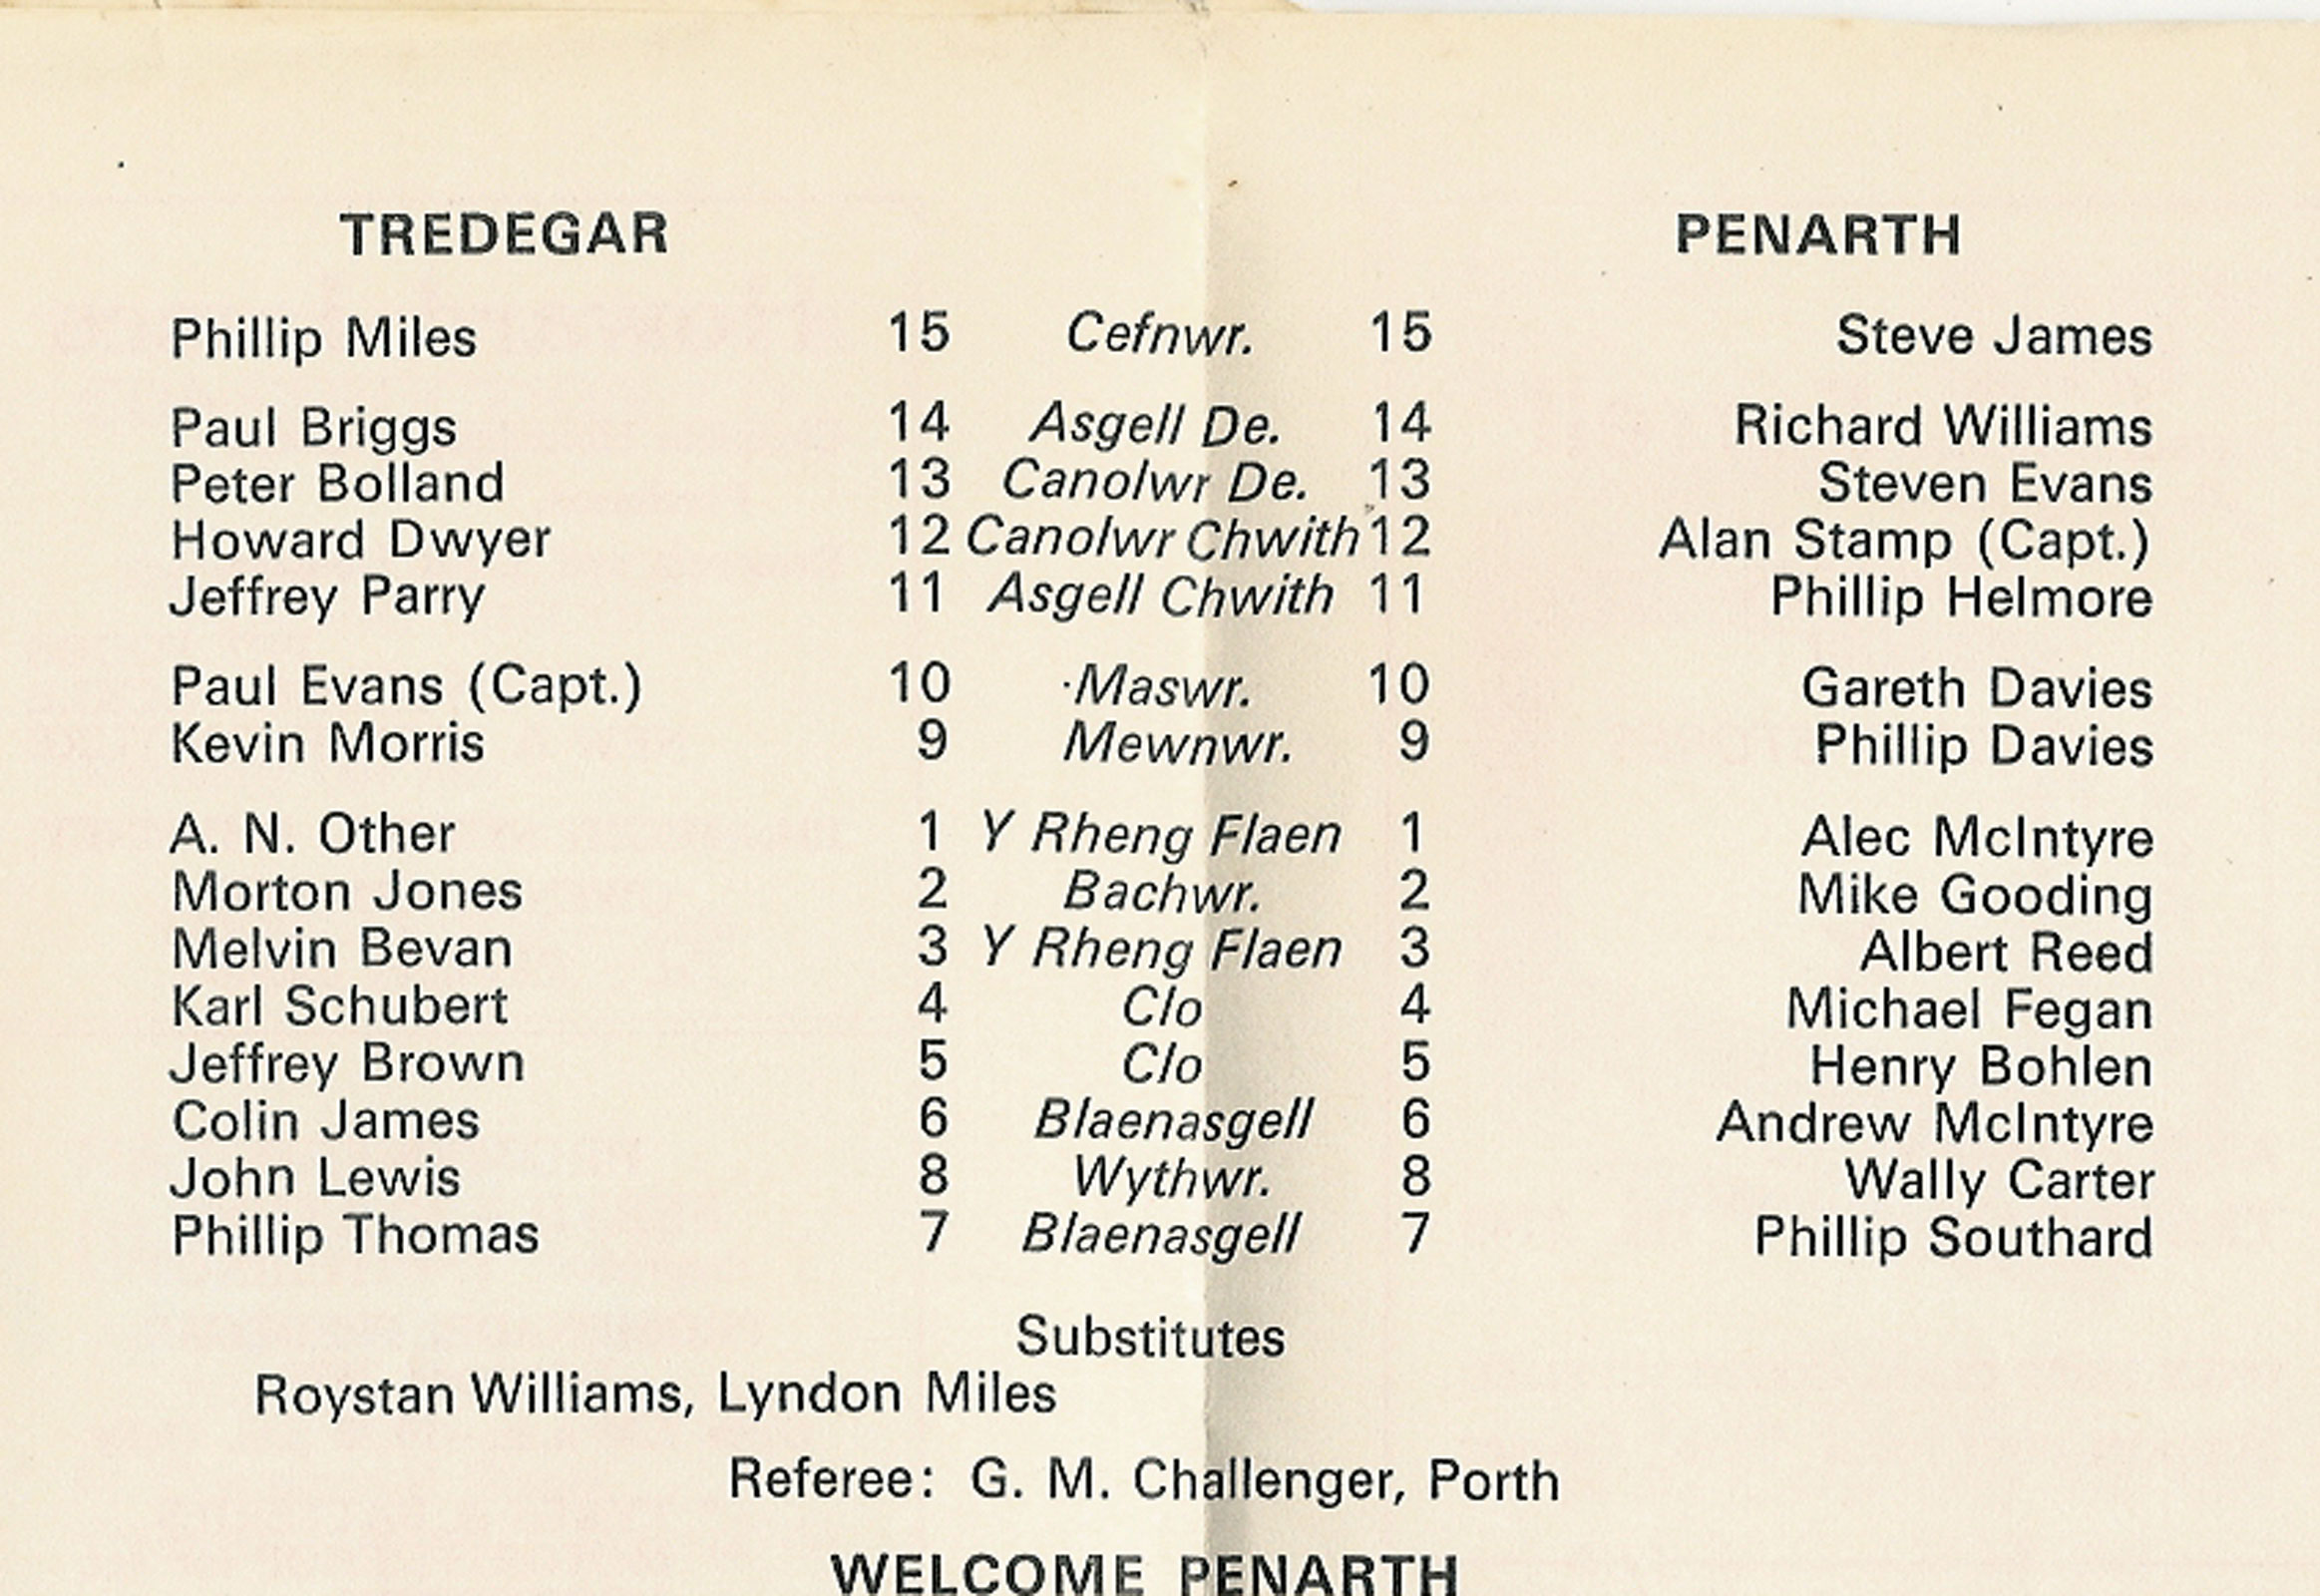 TREDEGAR PENARTH
Phillip Miles 15 Cefnwr. 15 Steve James
Paul Briggs 14 Asgell De. 14 Richard Williams
Peter Bolland 13 Canolwr De. 13 Steven Evans
Howard Dwyer 12 Canolwr Chwith 12 Alan Stamp (Capt.)
Jeffrey Parry 11 Asgell Chwith 11 Phillip Helmore
Paul Evans (Capt.) 10 Maswr. 10 Gareth Davies
Kevin Morris 9 Mewnwr. 9 Phillip Davies
A. N. Other 1 Y Rheng Flaen 1 Alec McIntyre
Morton Jones 2 Bachwr. 2 Mike Gooding
Melvin Bevan 3 Y Rheng Flaen 3 Albert Reed
Karl Schubert 4 Clo 4 Michael Fegan
Jeffrey Brown 5 Clo 5 Henry Bohlen
Colin James 6 Blaenasgell 6 Andrew McIntyre
John Lewis 8 Wythwr. 8 Wally Carter
Phillip Thomas 7 Blaenasgell 7 Phillip Southard
Substitutes
Roystan Williams, Lyndon Miles
Referee: G. M. Challenger, Porth
WELCOME PENARTH